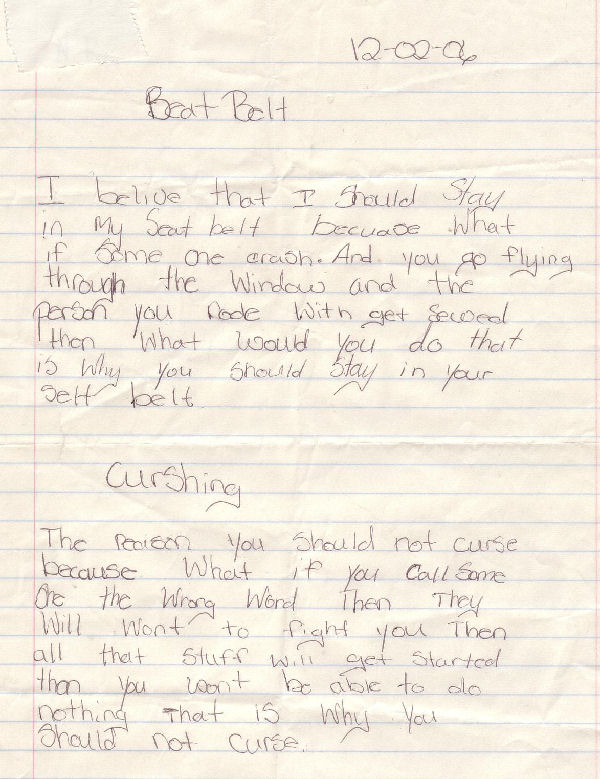 12-02-06
Beat Belt
I belive that I should stay
in My Seat belt becuase What
if Some one crash. And you go flying
through the Window and the
person you Rode With get Sewed
than What would you do that
is Why you should stay in your
Sett belt.
Curshing
The Reason you should not curse
because What if you Call Some
One the Wrong Word Then They
Will Wont to fight you Then
all that Stuff will get started
than you won't be able to do
nothing That is Why You
Should not curse.